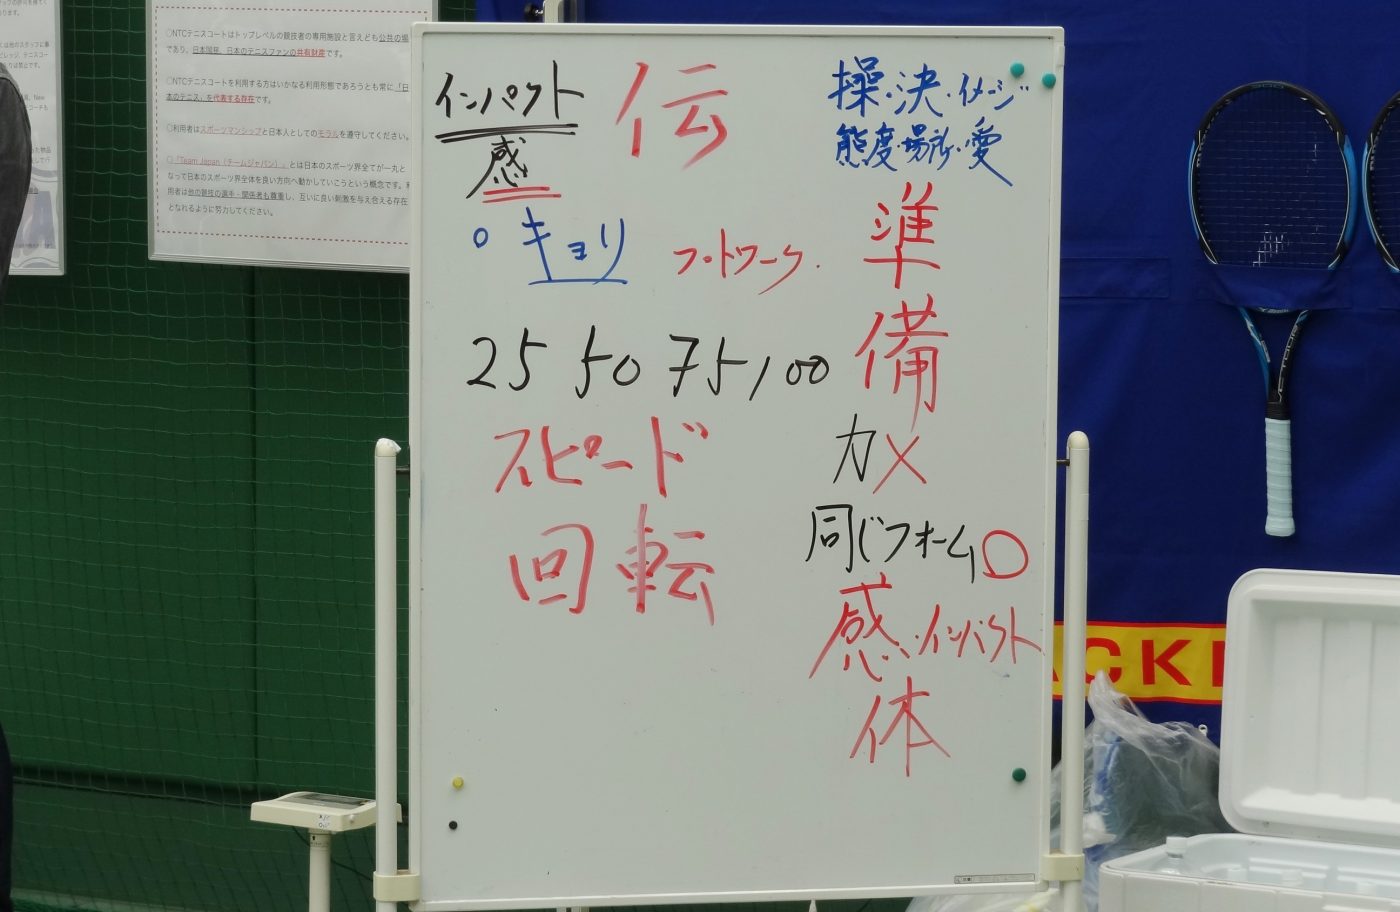 ○NTCテニスコートはトップレベルの競技者の専用施設と言えども公共の場
であり、日本国民、日本のテニスファンの共有財産です。
○NTCテニスコートを利用する方はいかなる利用形態であろうとも常に「日
本のテニス」を代表する存在です。
○利用者はスポーツマンシップと日本人としてのモラルを遵守してください。
○「Team Japan（チームジャパン）」とは日本のスポーツ界全てが一丸と
なって日本のスポーツ界全体を良い方向へ動かしていこうという概念です。
用者は他の競技の選手・関係者も尊重し、互いに良い刺激を与え合える存在
となれるように努力してください。
インパクト
感
伝
操・決・イメージ
態度・場所・愛
○ キョリ
フットワーク.
準
備
25 50 75 100
スピード
回転
力×
同じフォーム○
感・インパクト
体
ACK